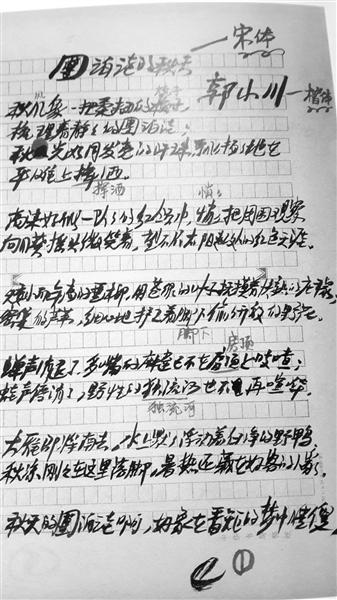 團泊洼的秋天 —宋体
郭小川—楷体
秋风象一把柔韧的梳子
梳理着静静的團泊洼；
秋光如同发亮的汗珠，飘飘扬扬地在
平滩上挥洒。
挥洒 悄悄
高粱好似一队队的红领巾，悄悄把周围观察
向日葵摇头微笑着，望不尽太阳起处的红色天涯。
矮小而年高的垂柳，用苍绿的叶子抚摸着快熟的庄稼；
密集的芦苇，细心地护卫着脚下偷偷开放的野花。
脚下 房顶
蝉声消退了，多嘴的麻雀已不在房顶上吱喳；
蛙声停息了，野性的独流减河也不再喧哗。
独流减河
大雁即将南去，水上默默浮动着白净的野鸭；
秋凉刚刚在这里落脚，暑热还藏在好客的人家。
秋天的團泊洼啊，好象在香甜的梦中睡傻
①